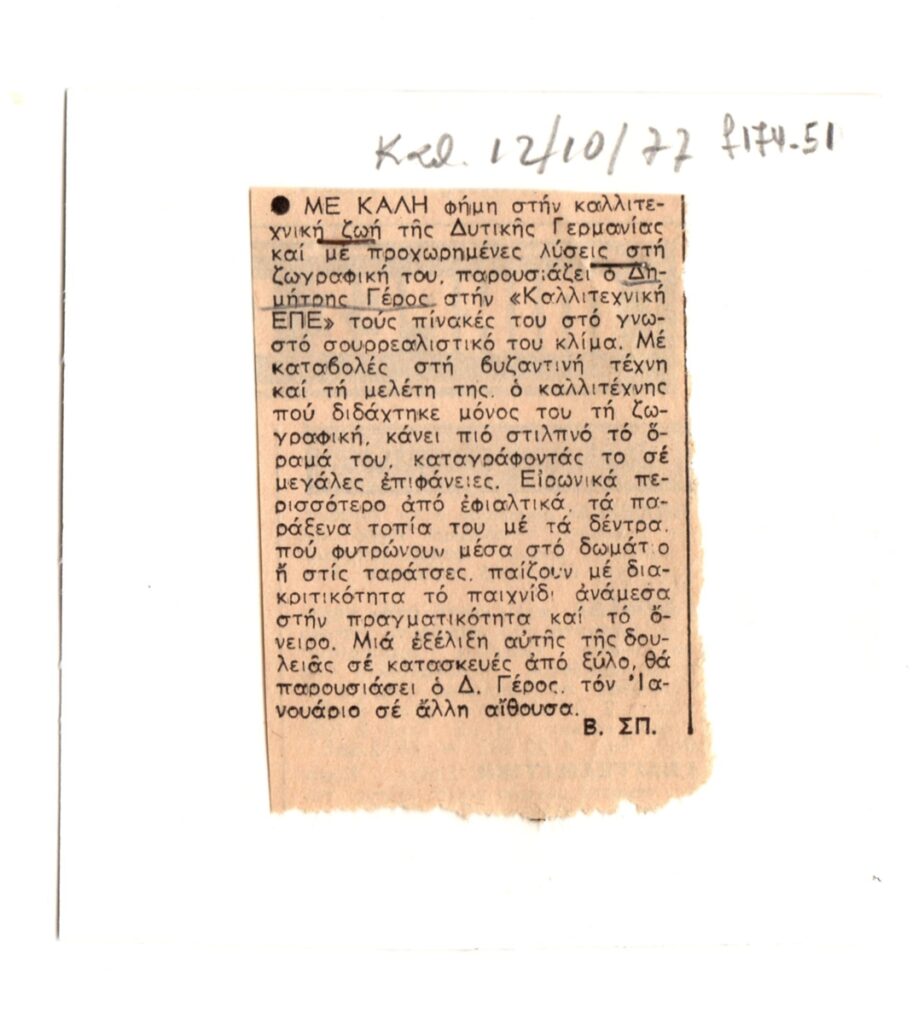 Καθ. 12/10/77 f174.51
● ΜΕ ΚΑΛΗ φήμη στήν καλλιτε-
χνική ζωή τῆς Δυτικῆς Γερμανίας
καί μέ προχωρημένες λύσεις στή
ζωγραφική του, παρουσιάζει ὁ Δη-
μήτρης Γέρος στήν «Καλλιτεχνική
ΕΠΕ» τούς πίνακές του στό γνω-
στό σουρρεαλιστικό του κλίμα. Μέ
καταβολές στή βυζαντινή τέχνη
καί τή μελέτη της, ὁ καλλιτέχνης
πού διδάχτηκε μόνος του τή ζω-
γραφική, κάνει πιό στιλπνό τό ὅ-
ραμά του, καταγράφοντάς το σέ
μεγάλες ἐπιφάνειες. Εἰρωνικά πε-
ρισσότερο ἀπό ἐφιαλτικά, τά πα-
ράξενα τοπία του μέ τά δέντρα,
πού φυτρώνουν μέσα στό δωμάτιο
ἤ στίς ταράτσες, παίζουν μέ δια-
κριτικότητα τό παιχνίδι ἀνάμεσα
στήν πραγματικότητα καί τό ὄ-
νειρο. Μιά ἐξέλιξη αὐτῆς τῆς δου-
λειᾶς σέ κατασκευές ἀπό ξύλο, θά
παρουσιάσει ὁ Δ. Γέρος, τόν Ἰα-
νουάριο σέ ἄλλη αἴθουσα.
Β. ΣΠ.